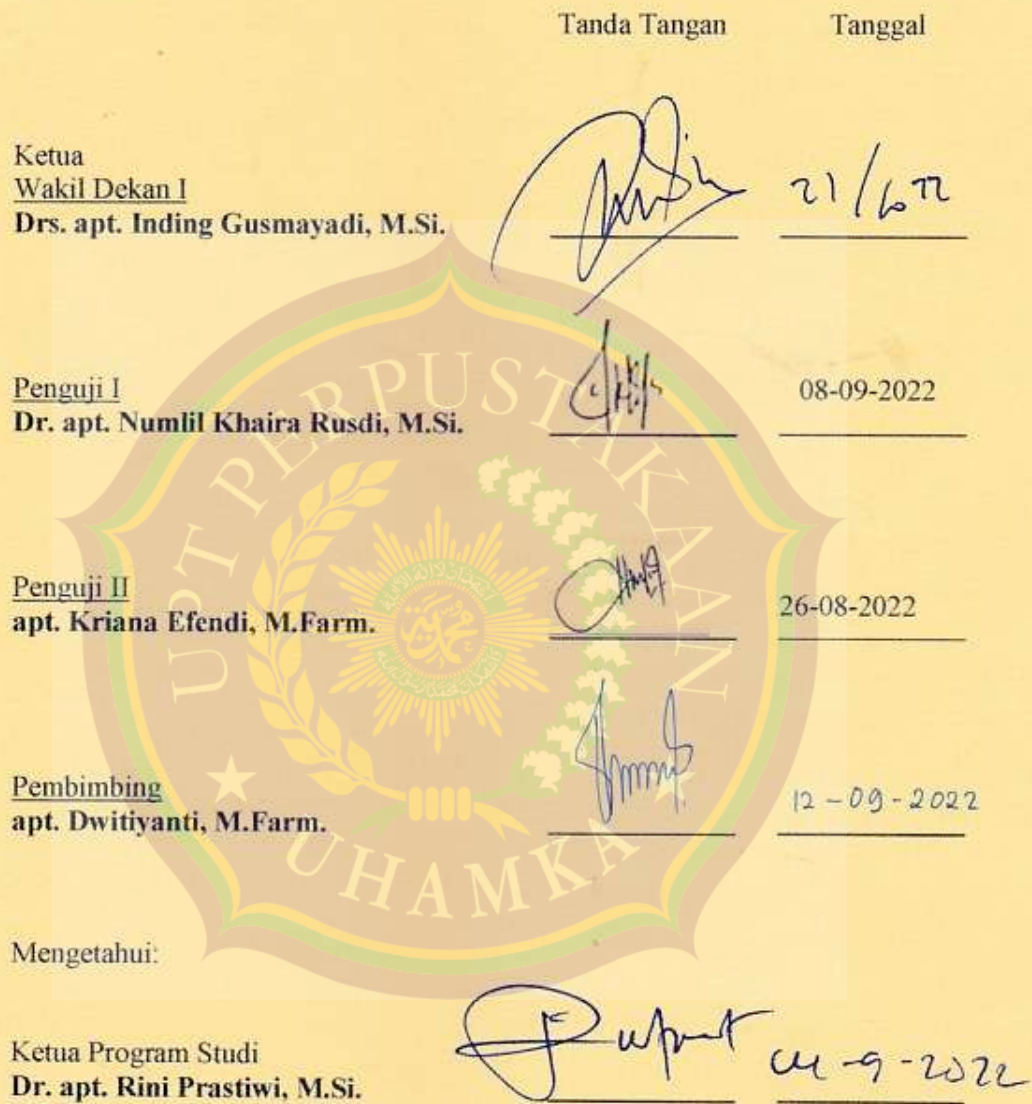 Tanda Tangan Tanggal
Ketua
Wakil Dekan I
Drs. apt. Inding Gusmayadi, M.Si.
Penguji I
Dr. apt. Numlil Khaira Rusdi, M.Si.
08-09-2022
Penguji II
apt. Kriana Efendi, M.Farm.
26-08-2022
Pembimbing
apt. Dwitiyanti, M.Farm.
12-09-2022
Mengetahui:
Ketua Program Studi
Dr. apt. Rini Prastiwi, M.Si.
-9-2022
UPT PERPUSTAKAAN
UHAMKA